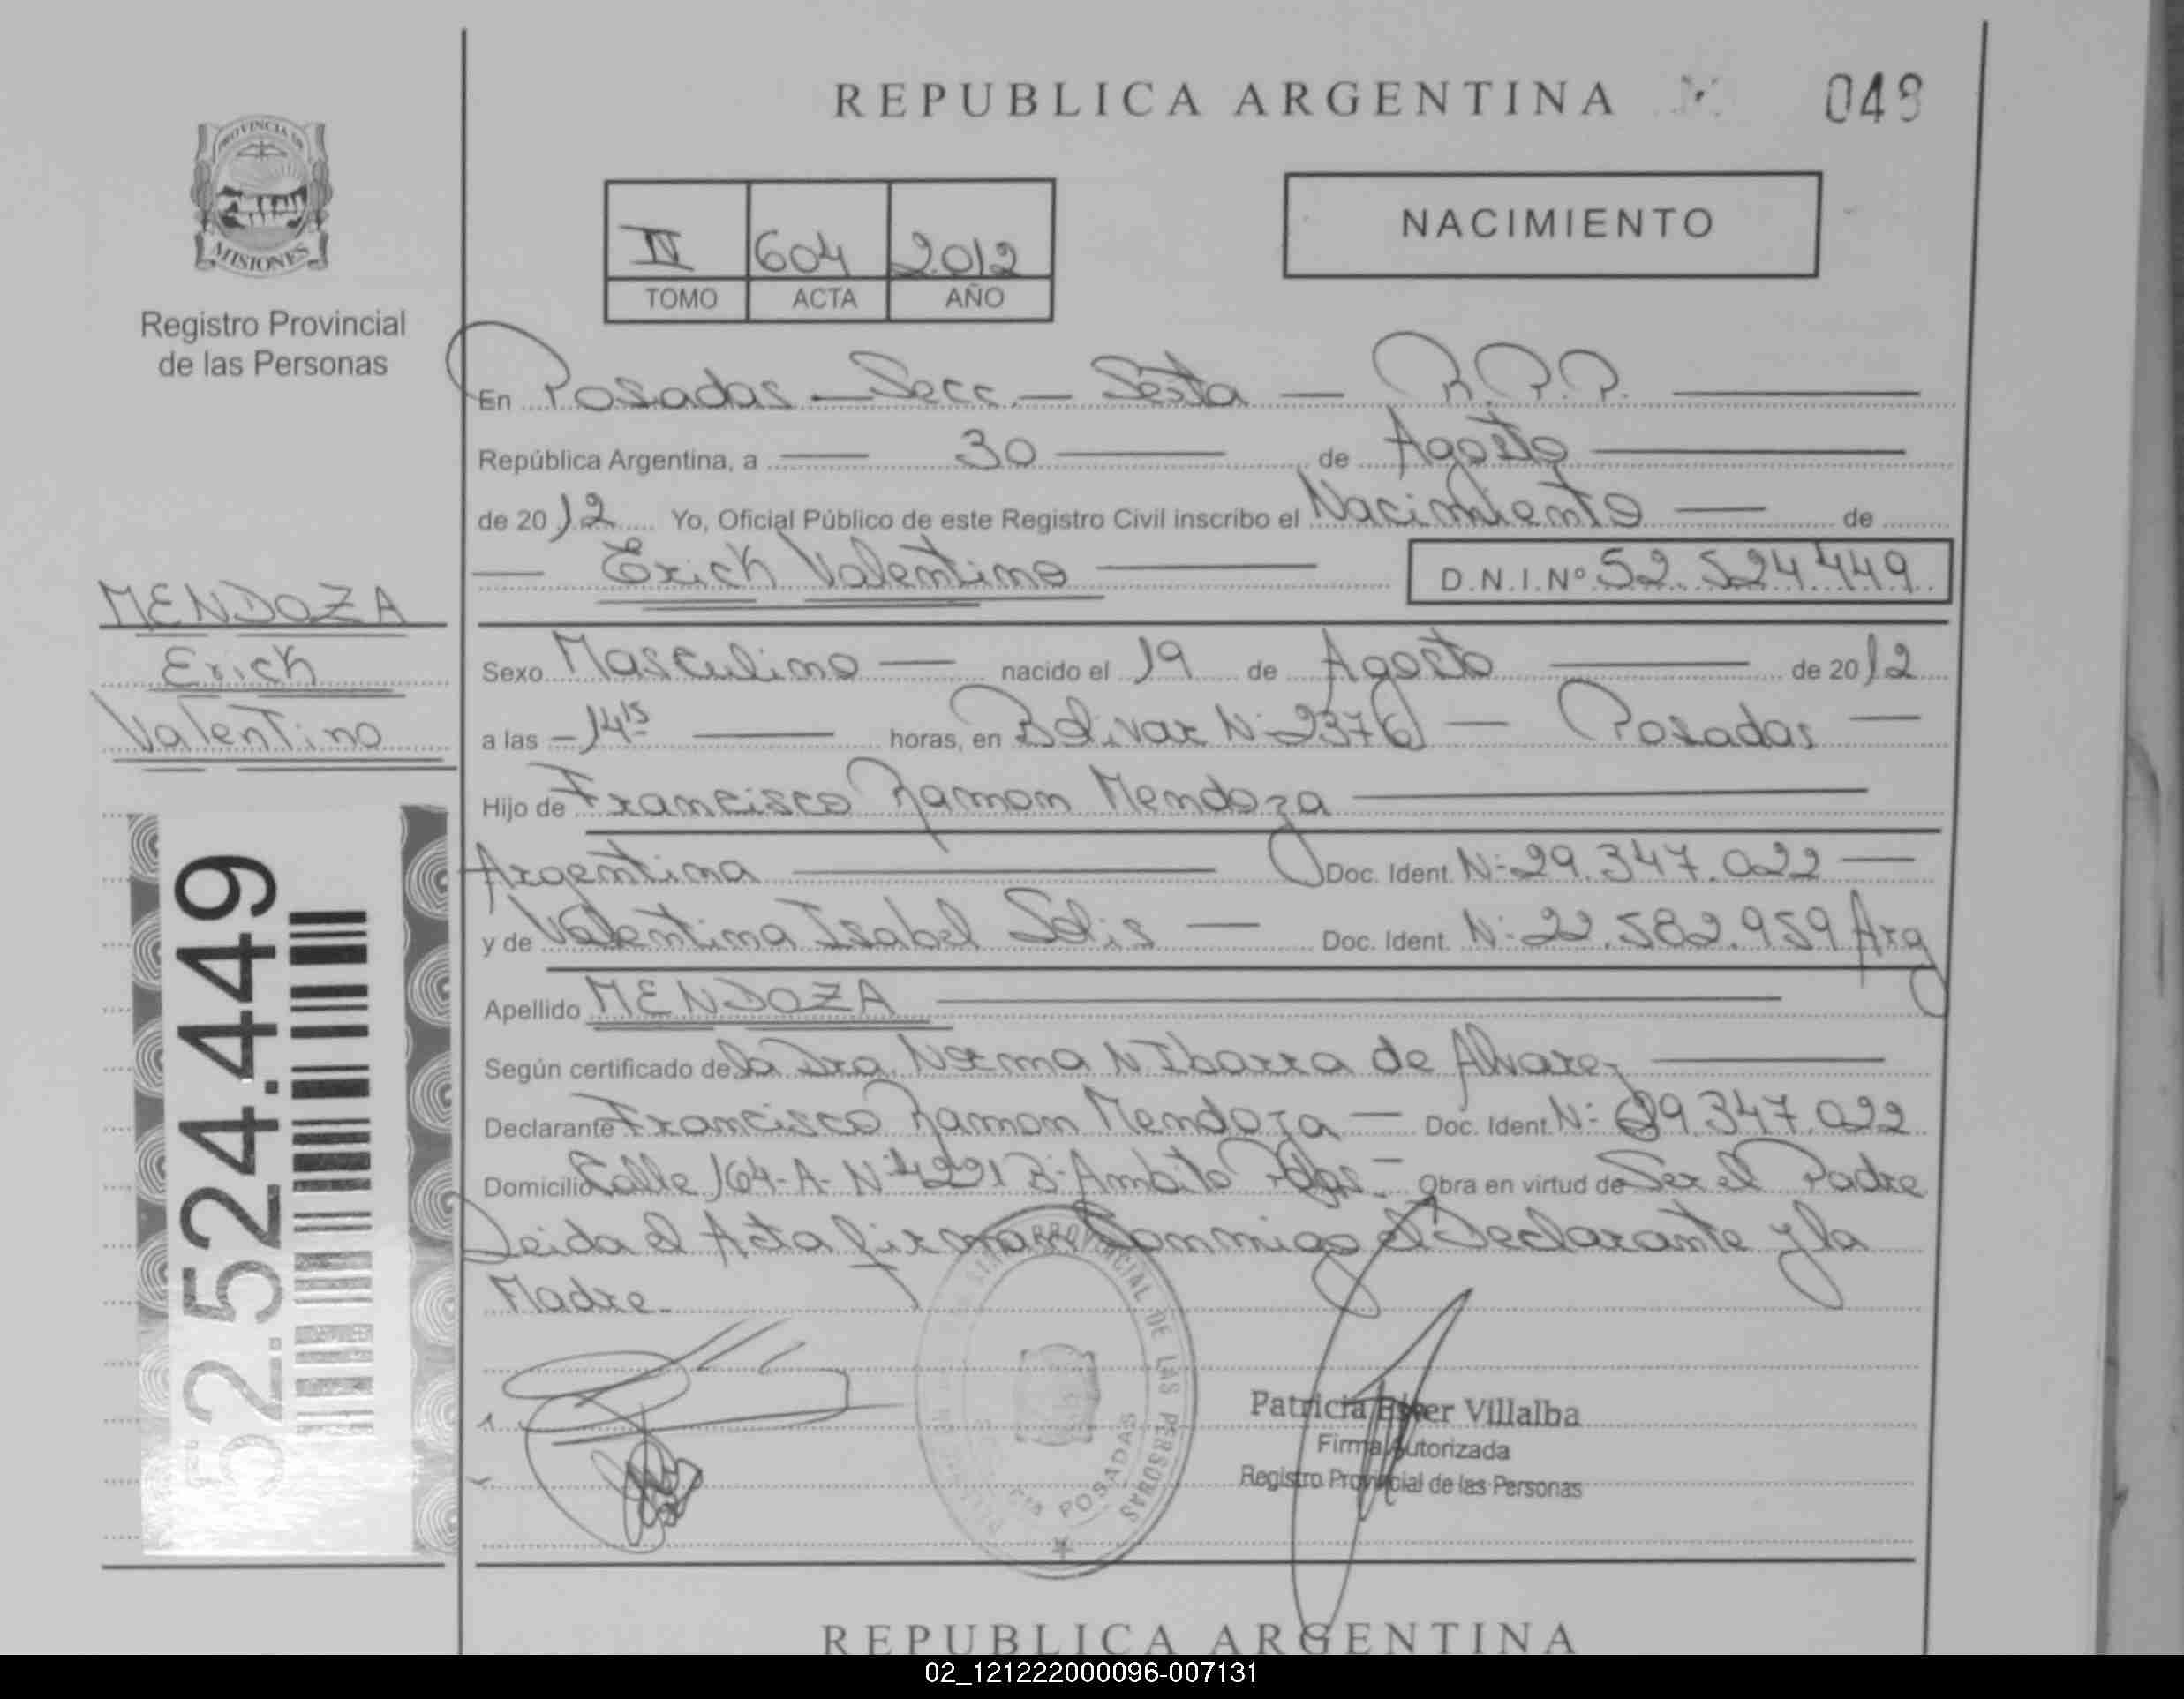 REPUBLICA ARGENTINA
049
PROVINCIA DE
MISIONES
Registro Provincial
de las Personas
IV 604 2012
TOMO ACTA AÑO
NACIMIENTO
En Posadas — Secc. — Sexta — R.P.P.
República Argentina, a — 30 — de Agosto
de 2012 Yo, Oficial Público de este Registro Civil inscribo el Nacimiento — de
— Erich Valentino — D.N.I.Nº 52.524.449
MENDOZA
Erich
Valentino
Sexo Masculino — nacido el 19 de Agosto — de 2012
a las - 14 15 — horas, en Bolivar N: 2376 — Posadas —
Hijo de Francisco Ramon Mendoza
Argentina — Doc. Ident. N: 29.347.022 —
y de Valentina Isabel Solis — Doc. Ident. N: 22.582.959 Arg
Apellido MENDOZA
Según certificado de la Dra. Norma N Ibarra de Alvarez
Declarante Francisco Ramon Mendoza — Doc. Ident. N: 29.347.022
Domicilio Calle 164-A- N: 4221 B: Ambito Pdas - Obra en virtud de Ser el Padre
Leida el Acta firman Conmigo el Declarante y la
Madre.
52.524.449
PROVINCIAL DE LAS PERSONAS
POSADAS
Patricia Ester Villalba
Firma Autorizada
Registro Provincial de las Personas
REPUBLICA ARGENTINA
02_121222000096-007131